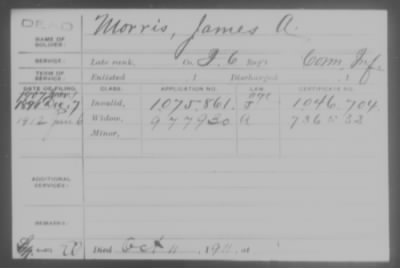 DEAD
NAME OF SOLDIER: Morris, James A.
SERVICE: Late rank, Co. I. 6 Reg't Conn. Inf.
TERM OF SERVICE: Enlisted , 1 Discharged , 1
DATE OF FILING. CLASS. APPLICATION NO. LAW. CERTIFICATE NO.
7 Invalid, 1.075.861. 1.046.704.
1912 Jan 6 Widow, 977930 736532
Minor,
ADDITIONAL SERVICES:
REMARKS:
Died Oct 11, 1911, at